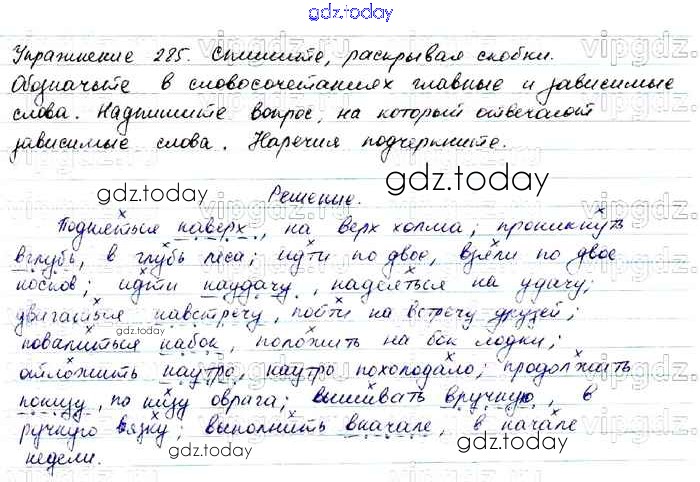 gdz.today
Упражнение 285. Спишите, раскрывая скобки.
Обозначьте в словосочетаниях главные и зависимые
слова. Надпишите вопрос, на который отвечают
зависимые слова. Наречия подчеркните.
gdz.today
gdz.today
Решение.
Подняться наверх, на верх холма; проникнуть
вглубь, в глубь леса; идти по двое, взяли по двое
носков; идти наудачу, надеяться на удачу;
двигаться навстречу, пойти на встречу друзей;
gdz.today
повалиться набок, положить на бок лодки;
отложить наутро, наутро похолодало; продолжить
понизу, по низу оврага; вышивать вручную, в
ручную вязку; выполнить вначале, в начале
gdz.today
gdz.today
недели.